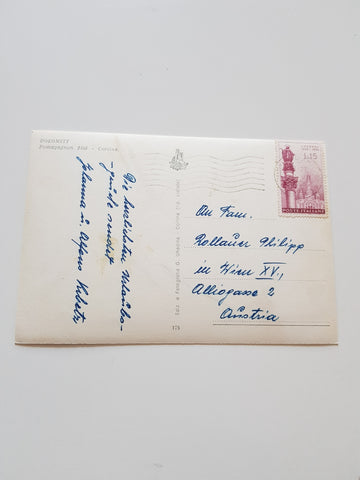 DOLOMITI
Pomagagnon 2450 - Cortina
Die herzlichsten Urlaubs-
grüße sendet
Johanna u. Alfons
Ediz. e Fotografia G. Ghedina - Cortina
175
L.15
POSTE ITALIANE
An Fam.
Rollauer Philipp
in Wien XV.,
Alliogasse 2
Austria